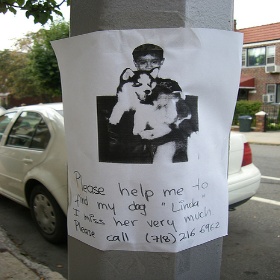 Please help me to
find my dog "Linda".
I miss her very much
Please call (718) 216 6962